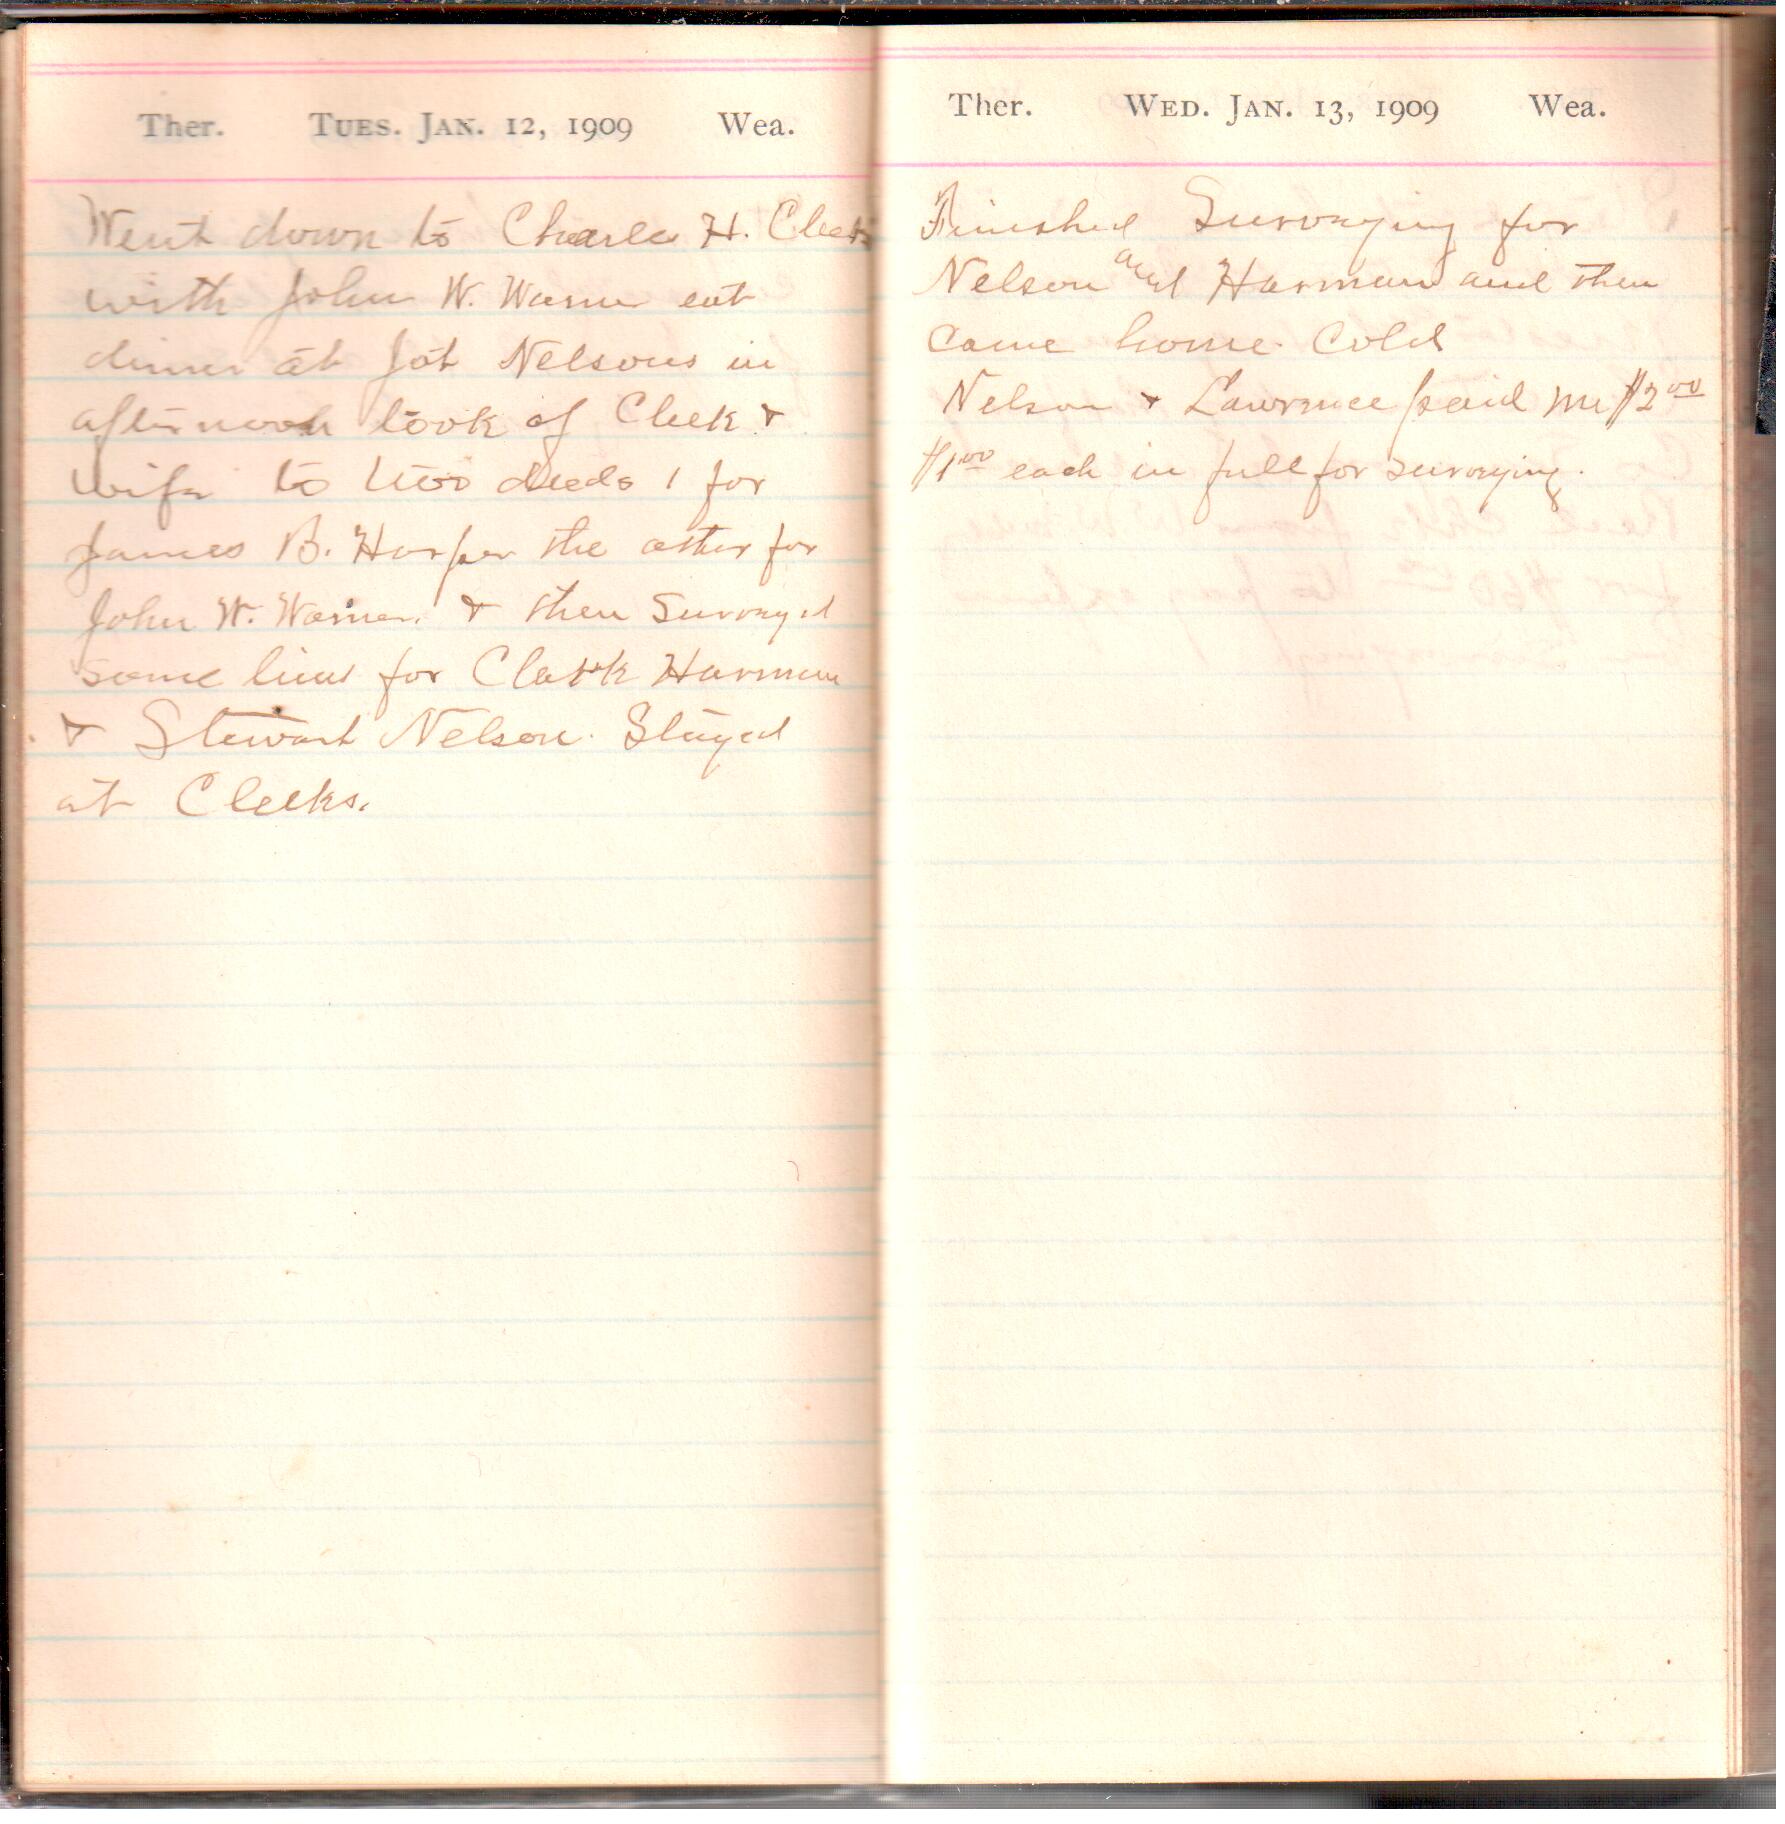 Ther. TUES. JAN. 12, 1909 Wea.
Went down to Charles H. Cleeks
with John W. Warner eat
dinner at Jot Nelsons in
afternoon took of Cleek &
wife to two deeds 1 for
James B. Harper the other for
John W. Warner. & then Surveyed
some lines for Clark Harman
& Stewart Nelson. Stayed
at Cleeks.
Ther. WED. JAN. 13, 1909 Wea.
Finished Surveying for
Nelson and Harman and then
came home. Cold
Nelson & Lawrence paid me $2.00
$1.00 each in full for surveying.